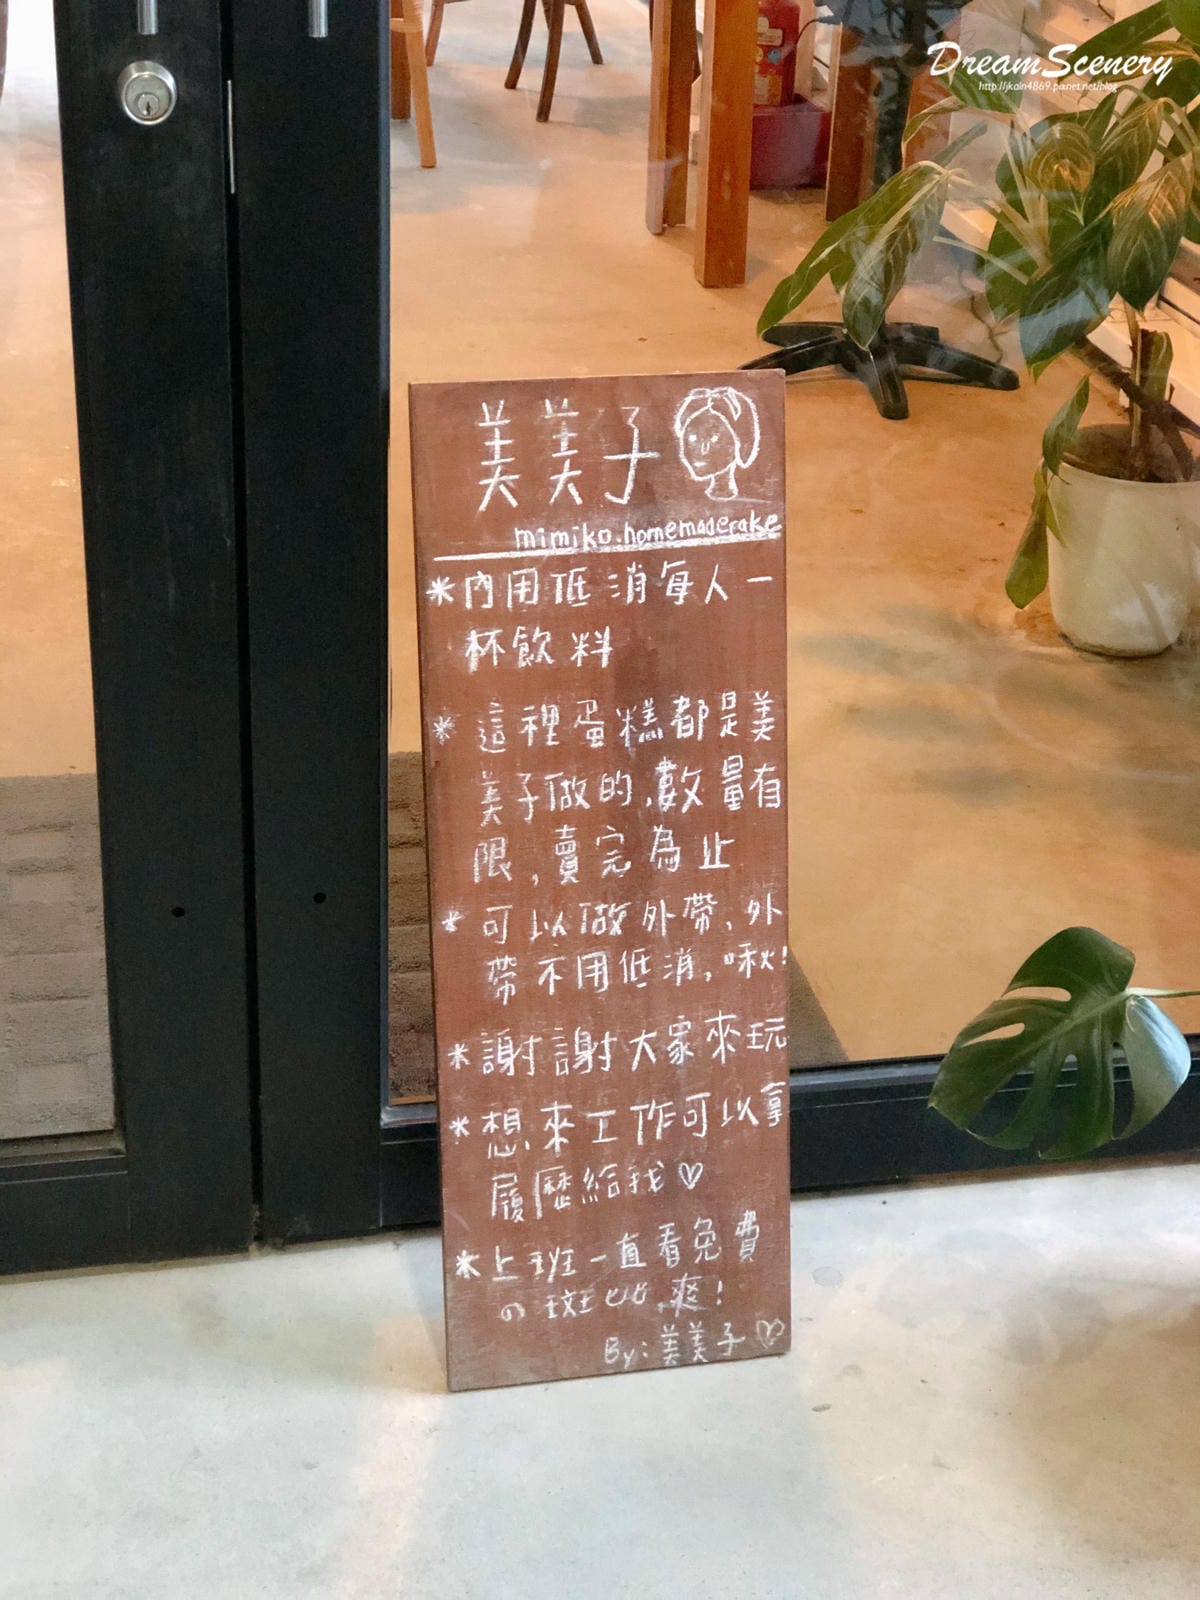 DreamScenery
http://jkaln4869.pixnet.net/blog
美美子
mimiko.homemadecake
*內用低消每人一
杯飲料
* 這裡蛋糕都是美
美子做的,數量有
限,賣完為止
* 可以做外帶、外
帶不用低消,啾!
* 謝謝大家來玩
* 想來工作可以拿
履歷給我♡
* 上班一直看免費
の斑比,爽!
By:美美子♡